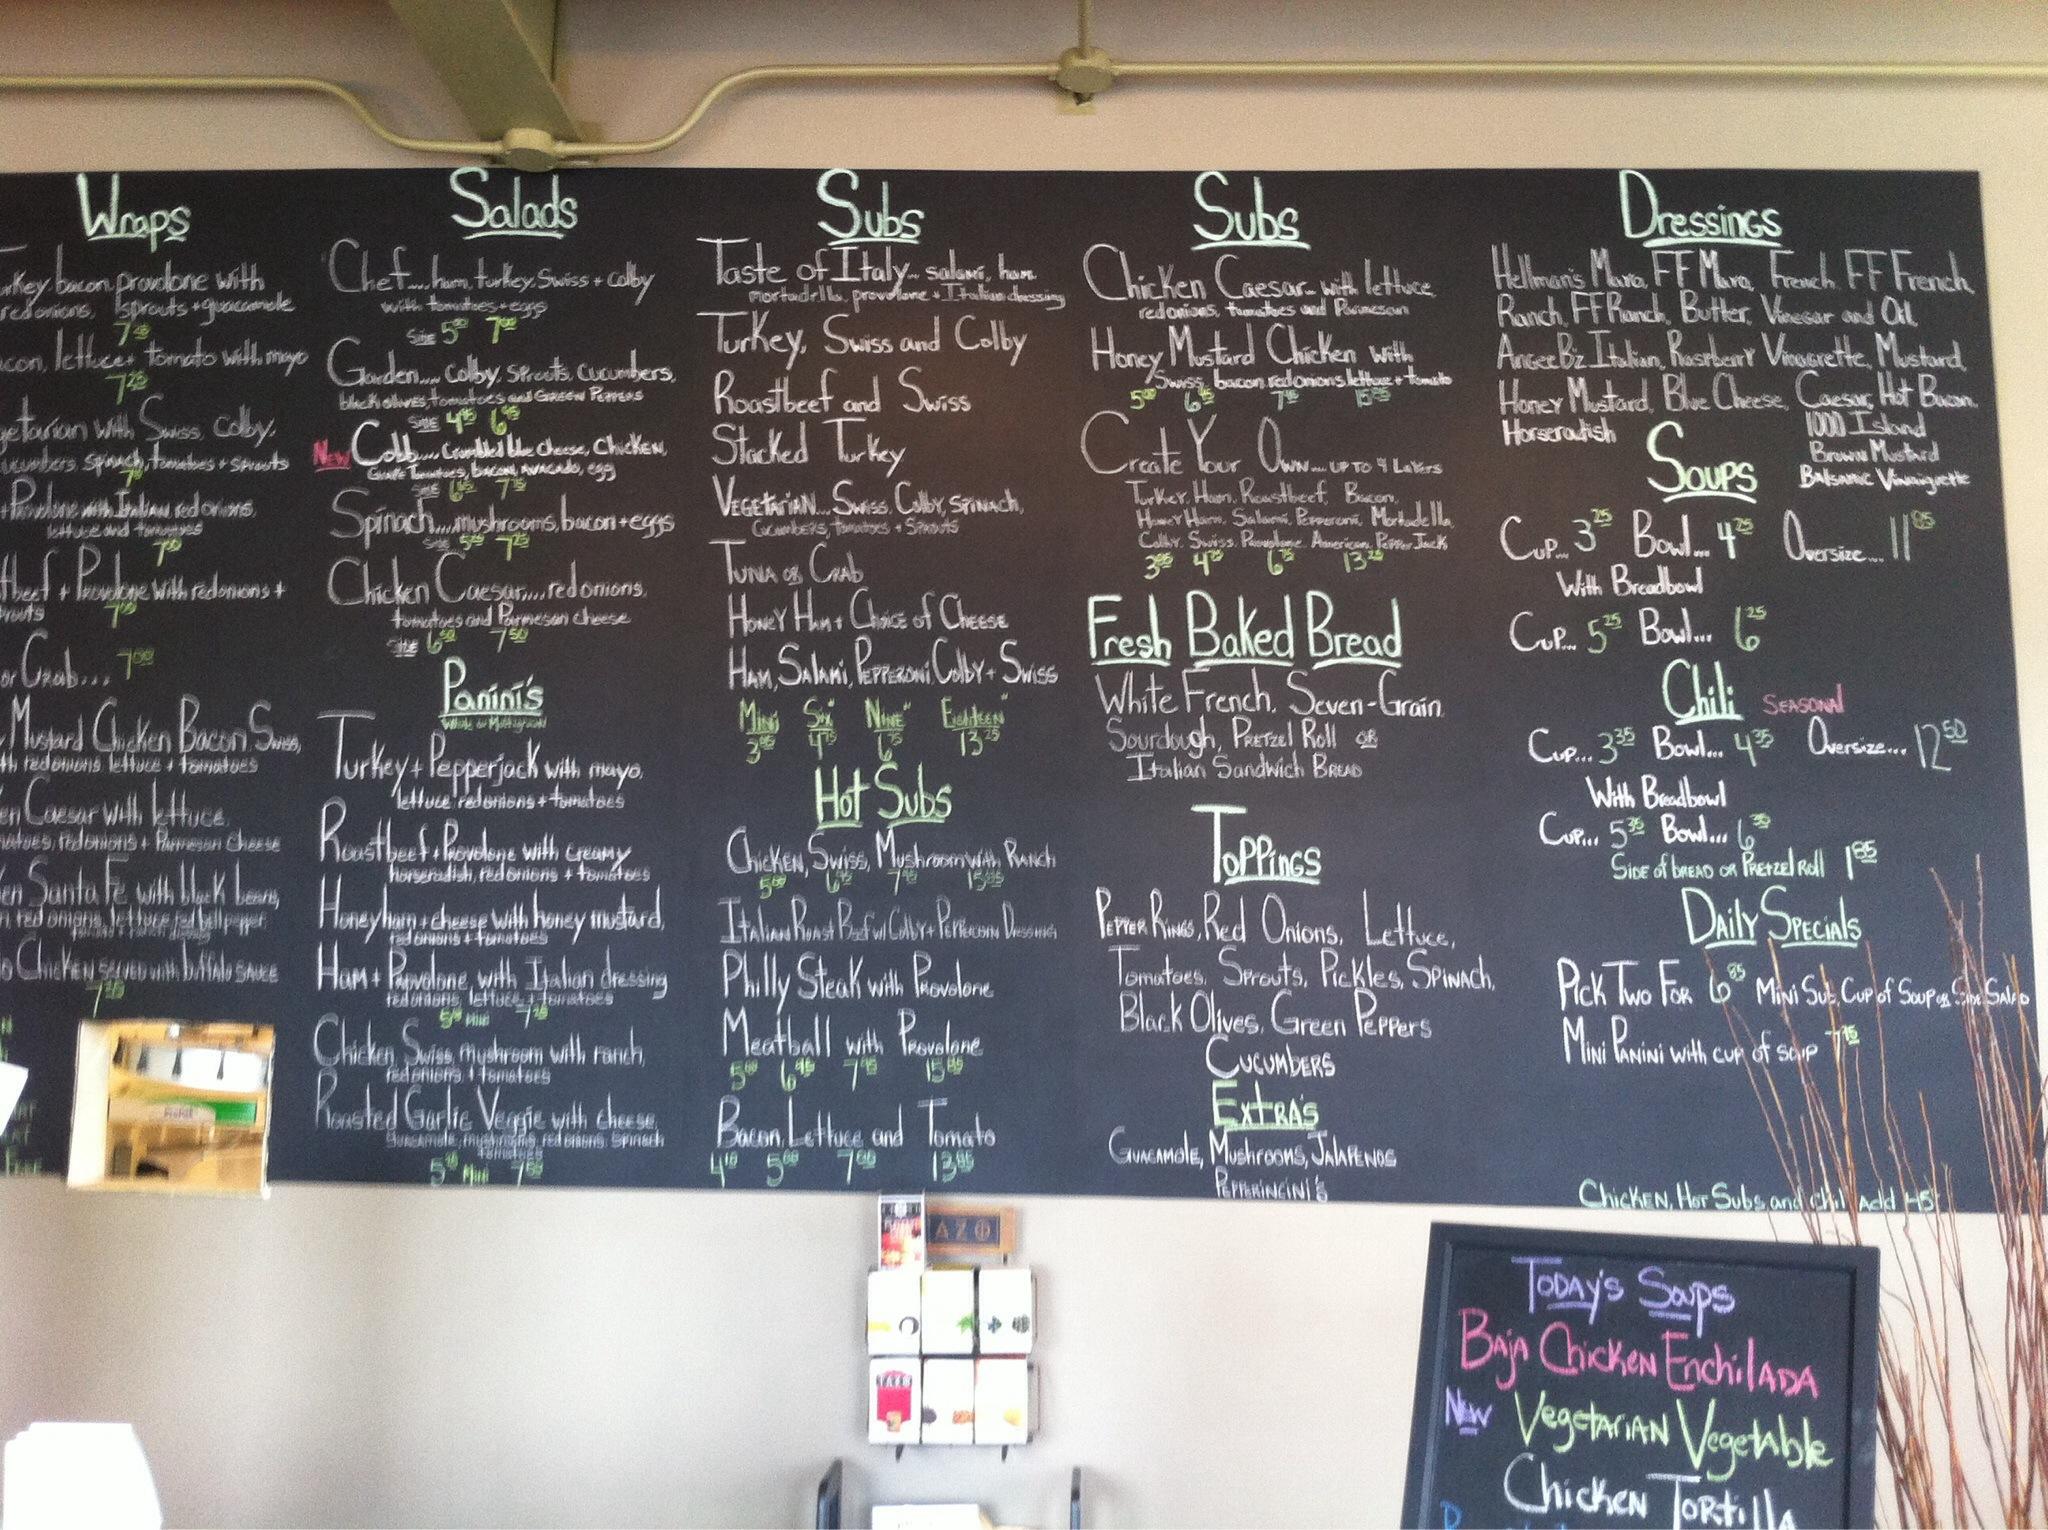 Wraps
bacon, provolone with
red onions, sprouts + guacamole
lettuce + tomato with mayo
7.25
with Swiss, Colby,
spinach, tomatoes + sprouts
with Italian red onions,
lettuce and tomatoes
7.00
+ Provolone with red onions +
7.00
or Crab... 7.00
Mustard Chicken Bacon Swiss,
red onions, lettuce + tomatoes
Caesar with lettuce,
red onions + Parmesan Cheese
Santa Fe with black beans,
red onions, lettuce, red bell pepper,
Chicken served with buffalo sauce
Salads
Chef.... ham, turkey, Swiss + colby
with tomatoes + eggs
Side 5.00 7.00
Garden.... colby, sprouts, cucumbers,
black olives, tomatoes and green peppers
Side 4.95 6.95
New Cobb.... crumbled blue cheese, chicken,
grape tomatoes, bacon, avacado, egg
Spinach.... mushrooms, bacon + eggs
Side 5.25 7.25
Chicken Caesar.... red onions,
tomatoes and Parmesan cheese
Side 6.50 7.50
Panini's
Turkey + Pepperjack with mayo,
lettuce, red onions + tomatoes
Roastbeef + Provolone with creamy
horseradish, red onions + tomatoes
Honey ham + cheese with honey mustard,
red onions + tomatoes
Ham + Provolone with Italian dressing
red onions, lettuce + tomatoes
Chicken Swiss, mushroom with ranch,
red onions + tomatoes
Roasted Garlic Veggie with cheese,
guacamole, mushrooms, red onions, spinach
tomatoes
Subs
Taste of Italy... salami, ham
mortadella, provolone + Italian dressing
Turkey, Swiss and Colby
Roastbeef and Swiss
Stacked Turkey
Vegetarian... Swiss, Colby, spinach,
cucumbers, tomatoes + sprouts
Tuna or Crab
Honey Ham + Choice of Cheese
Ham, Salami, Pepperoni Colby + Swiss
Mini Six" Nine" Eighteen"
3.95 4.75 6.75 13.25
Hot Subs
Chicken, Swiss, Mushroom with Ranch
5.00 6.95 7.95 15.85
Italian Roast Beef w/ Colby + Peppercorn Dressing
Philly Steak with Provolone
Meatball with Provolone
5.00 6.95 7.95 15.85
Bacon, Lettuce and Tomato
4.10 5.00 7.00 13.85
Subs
Chicken Caesar... with lettuce,
red onions, tomatoes and Parmesan
Honey Mustard Chicken with
Swiss, bacon, red onions, lettuce + tomato
5.00 6.95 7.95 15.85
Create Your Own.... up to 4 layers
Turkey, Ham, Roastbeef, Bacon,
Honey Ham, Salami, Pepperoni, Mortadella,
Colby, Swiss, Provolone, American, Pepper Jack
3.95 4.75 6.75 13.25
Fresh Baked Bread
White French, Seven-Grain,
Sourdough, Pretzel Roll or
Italian Sandwich Bread
Toppings
Pepper Rings, Red Onions, Lettuce,
Tomatoes, Sprouts, Pickles, Spinach,
Black Olives, Green Peppers
Cucumbers
Extra's
Guacamole, Mushrooms, Jalapenos
Pepperincini's
Dressings
Hellman's Mayo, FF Mayo, French, FF French,
Ranch, FF Ranch, Butter, Vinegar and Oil,
Italian, Raspberry Vinagrette, Mustard,
Honey Mustard, Blue Cheese, Caesar, Hot Bacon,
Horseradish 1000 Island
Brown Mustard
Balsamic Vinaigrette
Soups
Cup... 3.25 Bowl... 4.25 Oversize.... 11.85
With Breadbowl
Cup... 5.25 Bowl... 6.25
Chili Seasonal
Cup... 3.35 Bowl... 4.35 Oversize... 12.50
With Breadbowl
Cup... 5.35 Bowl... 6.35
Side of bread or Pretzel Roll 1.85
Daily Specials
Pick Two For 6.85 Mini Sub, Cup of Soup or Side Salad
Mini Panini with cup of soup
Chicken, Hot Subs, and Chili Add
Today's Soups
Baja Chicken Enchilada
New Vegetarian Vegetable
Chicken Tortilla